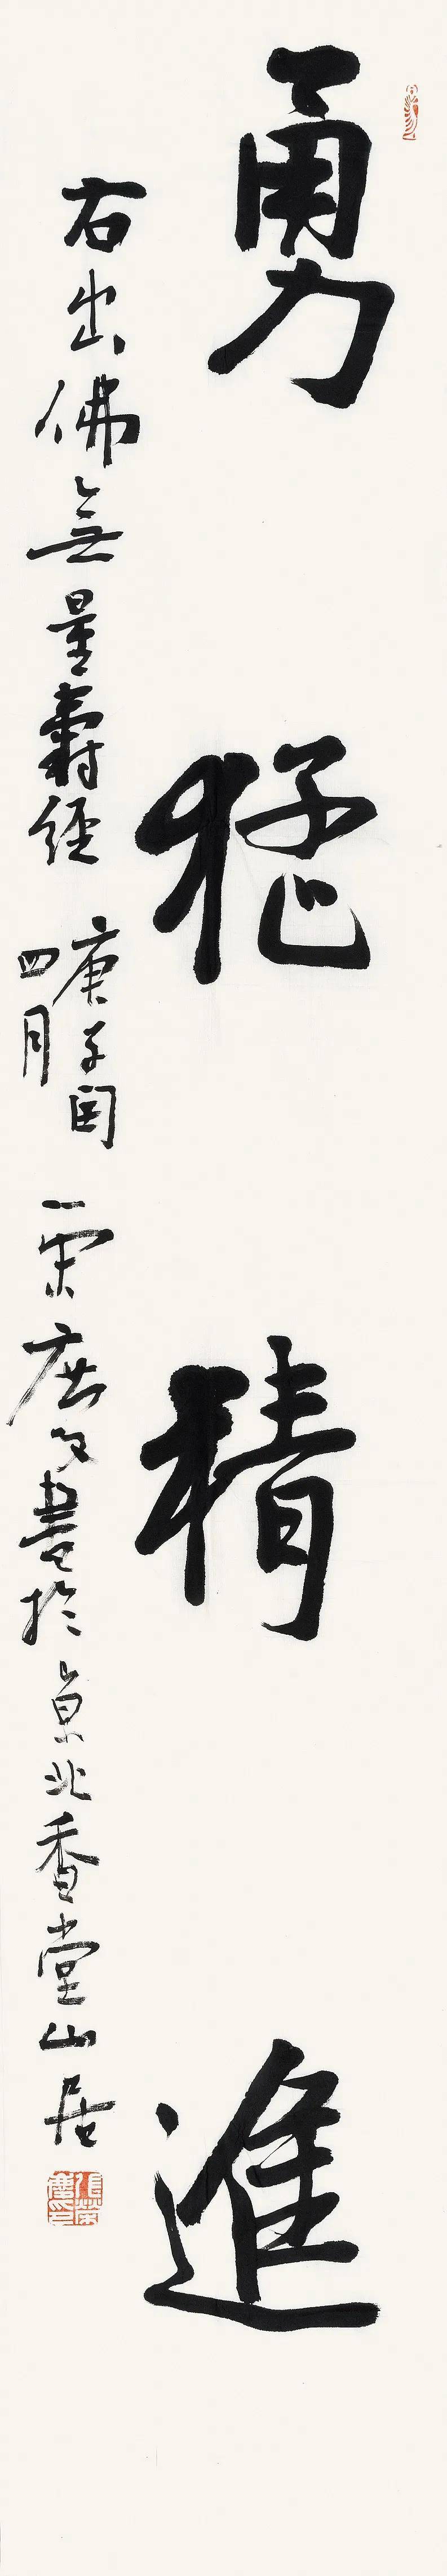 勇猛精進
右出佛無量壽經 庚子閏四月 榮慶書於京北香堂山居
張榮慶印